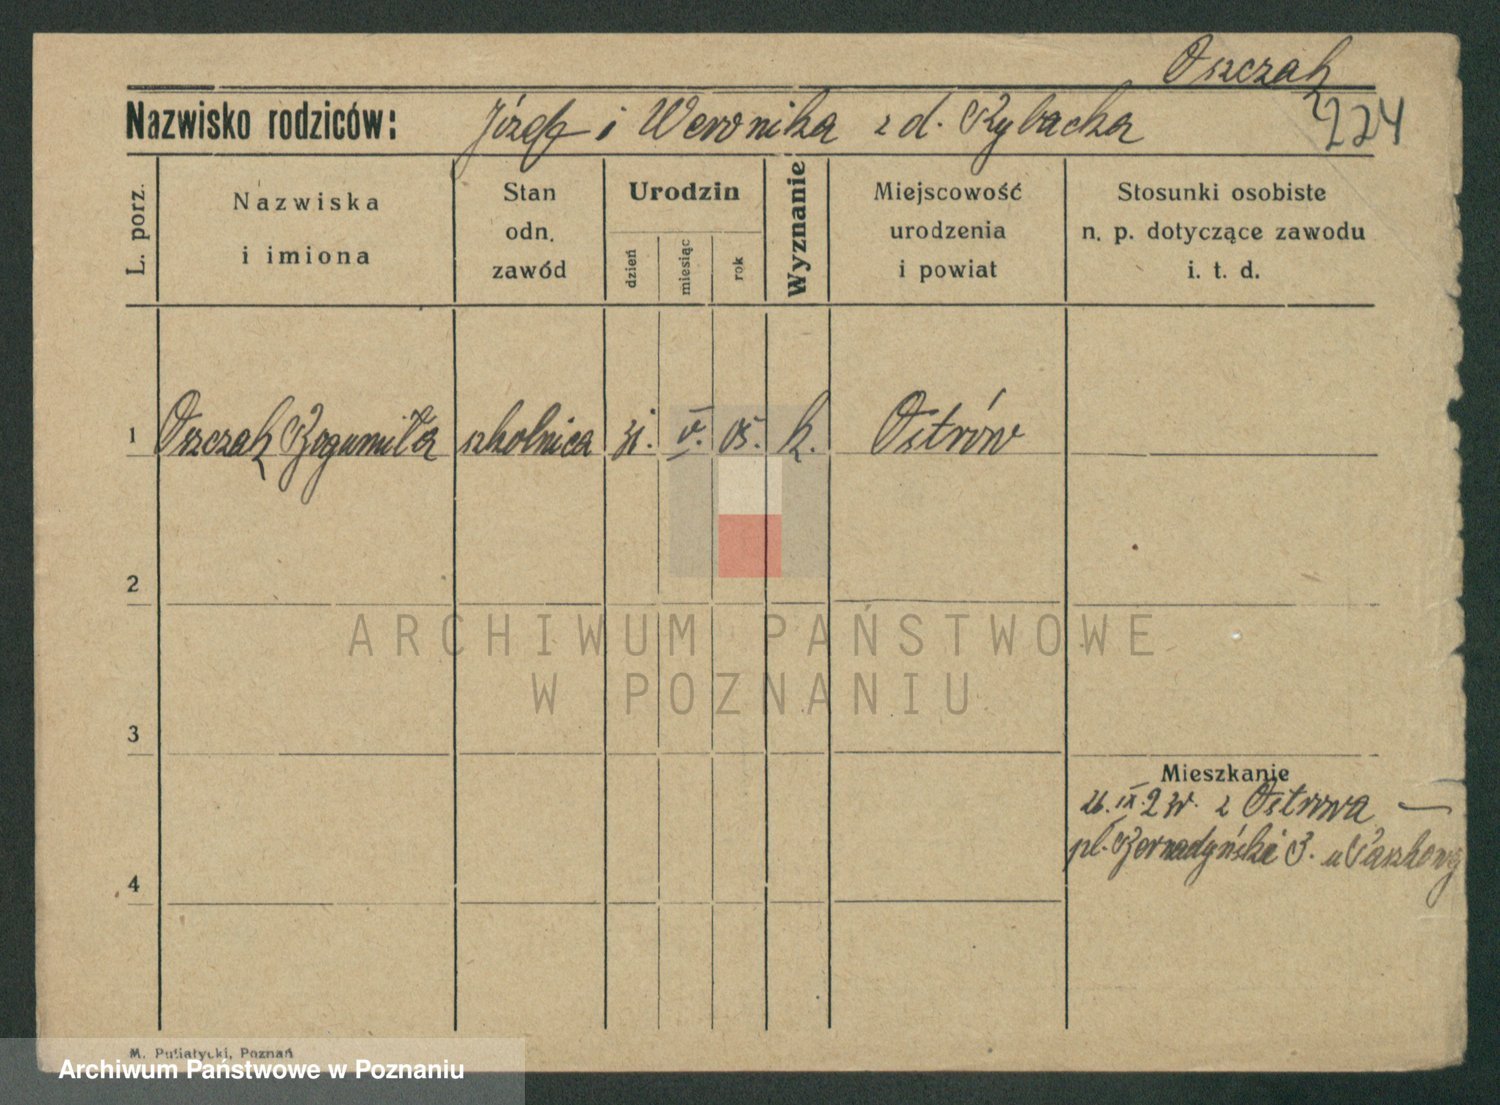 Oszczak
224
Nazwisko rodziców: Józef i Weronika z d. Rybacka
L. porz.
Nazwiska
i imiona
Stan
odn.
zawód
Urodzin
dzień
miesiąc
rok
Wyznanie
Miejscowość
urodzenia
i powiat
Stosunki osobiste
n. p. dotyczące zawodu
i. t. d.
1 Oszczak Bogumiła szkolnica 31. V. 05. k. Ostrów
2
ARCHIWUM PAŃSTWOWE
W POZNANIU
3
Mieszkanie
26. IX. z Ostrowa —
pl. Bernadyński 3. u
4
M. Putiatycki, Poznań
Archiwum Państwowe w Poznaniu